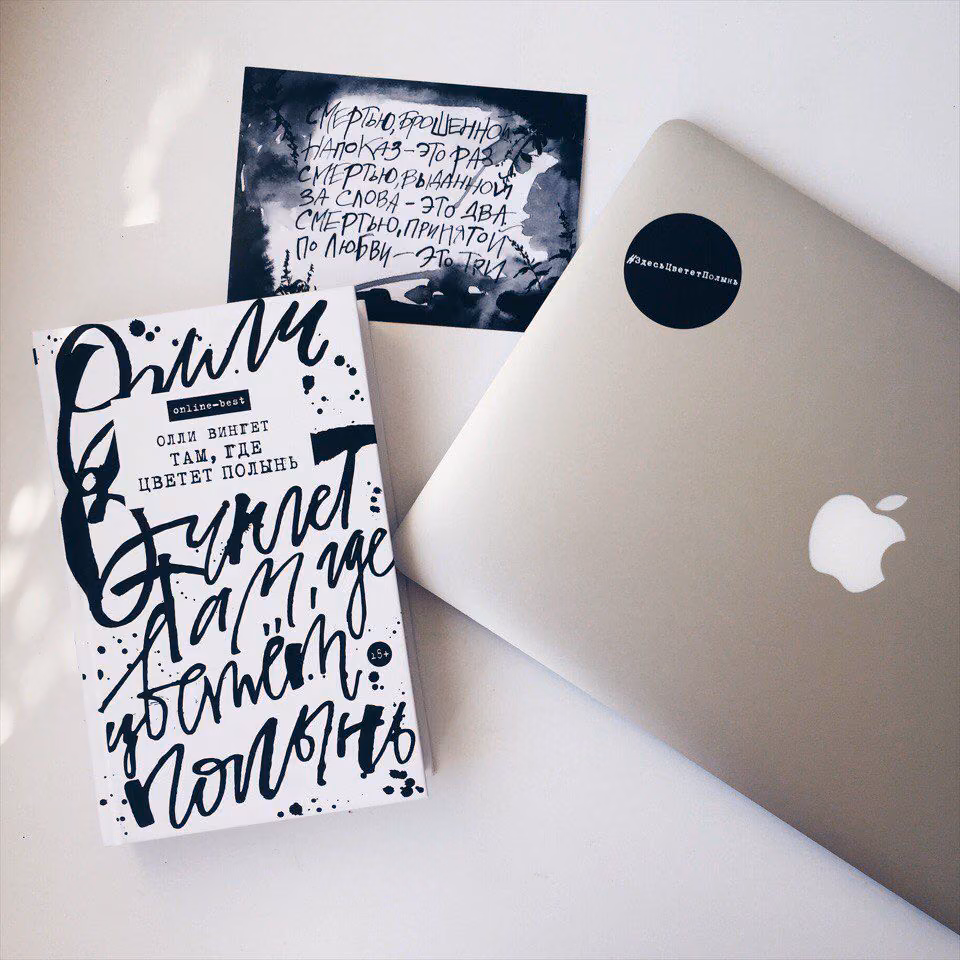 СМЕРТЬЮ, БРОШЕННОЙ
НАПОКАЗ – ЭТО РАЗ.
СМЕРТЬЮ, ВЫДАННОЙ
ЗА СЛОВА – ЭТО ДВА.
СМЕРТЬЮ, ПРИНЯТОЙ
ПО ЛЮБВИ – ЭТО ТРИ.
#ЗдесьЦвететПолынь
Олли
online-best
ОЛЛИ ВИНГЕТ
ТАМ, ГДЕ
ЦВЕТЕТ ПОЛЫНЬ
Вингет
Там, где
цветёт
18+
полынь